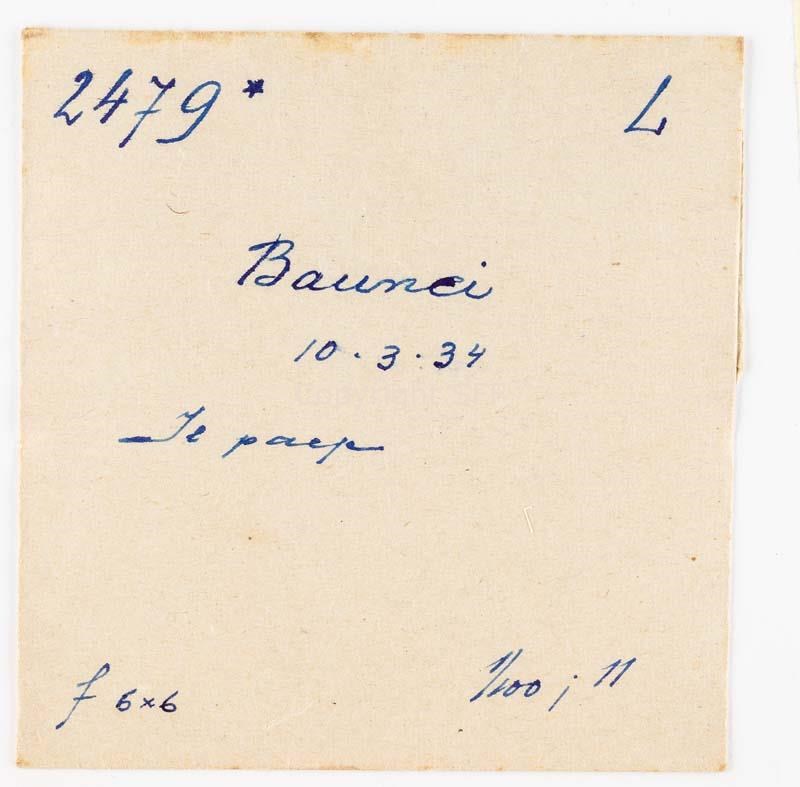 2479* L
Baunei
10.3.34
Il paese
f 6x6 1/100 ; 11